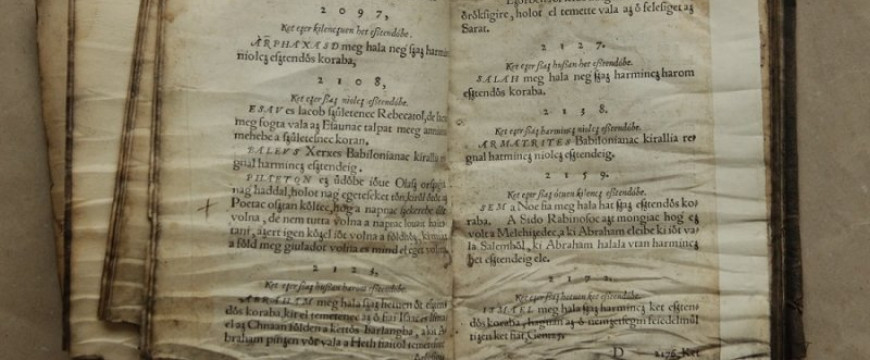 2 0 9 7,
Ket ezer kilencuen het eſztendőbe.
ARPHAXAD meg hala neg ſzaz harmin
niolcz eſztendős koraba,
2 1 0 8,
Ket ezer ſzaz niolcz eſztendőbe.
ESAV es Iacob ſzűletenec Rebecatol, de Iacob
meg fogta vala az Eſaunac talpat meeg
mehebe a ſzűleteſnec koran.
BALEVS Xerxes Babiloniànac kirallia
gnal harmincz eſztendeig.
PHAETON ez űdőbe
nag haddal, holot nag egeteſeket tőn,
Poetac oſztan kőltec, hog a napnac
volna, de nem tutta volna a napnac
tani, azert igen kőzel iőt volna a főldhőz,
a főld meg giuladot volna es mind el eget volna.
2 1 2 4,
Ket ezer ſzaz huſzan harom eſztendőbe.
ABRAHAM meg hala ſzaz hetuen őt
dős koraba, kit el temetenec az ő fiai Iſaac es
el az Chnaan főlden a kettős barlangba, a kit
braham pinzen vőt vala a Heth fiaitol
őrőkſigire, holot el temette vala az ő feleſiget az
Sarat.
2 1 2 7.
Ket ezer ſzaz huſzan het eſztendőbe.
SALAH meg hala neg ſzaz harmincz harom
eſztendős koraba.
2 1 3 8.
Ket ezer ſzaz harmincz niolcz eſztendőbe.
ARMATRITES Babiloniànac kirallia re,
gnal harmincz niolcz eſztendeig.
2 1 5 9.
Ket ezer ſzaz őtuen kilencz eſztendőbe.
SEM a Noe fia meg hala hat ſzaz eſztendős ko,
raba. A Sido Rabinoſoc azt mongiac hog ez
volt a Melchiſedec, a ki Abraham eleibe ki iőt va,
la Salemből, ki Abraham halala vtan harmincz
őt eſztendeig ele.
2 1 7 2.
Ket ezer ſzaz hetuen ket eſztendőbe.
ISMAEL meg hala ſzaz harmincz ket eſzten,
dős koraba, hagiuan az ő nemzetſegin feiedelmől
tizenket hat, Geneſ.
D 2176. Ket